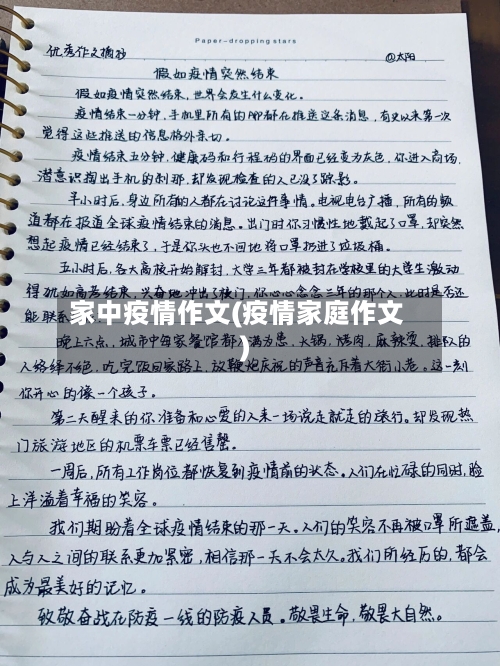 Paper-dropping stars
优秀作文摘抄
@太阳
假如疫情突然结束
假如疫情突然结束,世界会发生什么变化。
疫情结束一分钟,手机里所有的APP都在推送这条消息,有史以来第一次
觉得这些推送的信息格外亲切。
疫情结束五分钟,健康码和行程码的界面已经变为灰色,你进入商场,
潜意识掏出手机的刹那,却发现检查的人已没了踪影。
半小时后,身边所有的人都在讨论这件事情。电视电台广播,所有的频
道都在报道全球疫情结束的消息。出门时你习惯性地戴起了口罩,却突然
想起疫情已经结束了,于是你头也不回地将口罩扔进了垃圾桶。
五小时后,各大高校开始解封,大学三年都被封在学校里的大学生激动
得犹如高考结束,兴奋地冲出了校门,你心心念念三年的那个人,此时是否还
能联系
家中疫情作文(疫情家庭作文
)
晚上六点,城市中每家餐馆都满为患,火锅,烤肉,麻辣烫,排队的
人络绎不绝,吃完饭回家路上,放鞭炮庆祝的声音充斥着大街小巷。这一刻
你开心的像一个孩子。
第二天醒来的你,准备和心爱的人来一场说走就走的旅行。却发现热
门旅游地区的机票车票已经售罄。
一周后,所有工作岗位都恢复到疫情前的状态。人们在忙碌的同时,脸
上洋溢着幸福的笑容。
我们期盼着全球疫情结束的那一天。人们的笑容不再被口罩所遮盖,
人与人之间的联系更加紧密,相信那一天不会太久。我们所经历的,都会
成为最美好的记忆。
致敬奋战在防疫一线的防疫人员。敬畏生命,敬畏大自然。